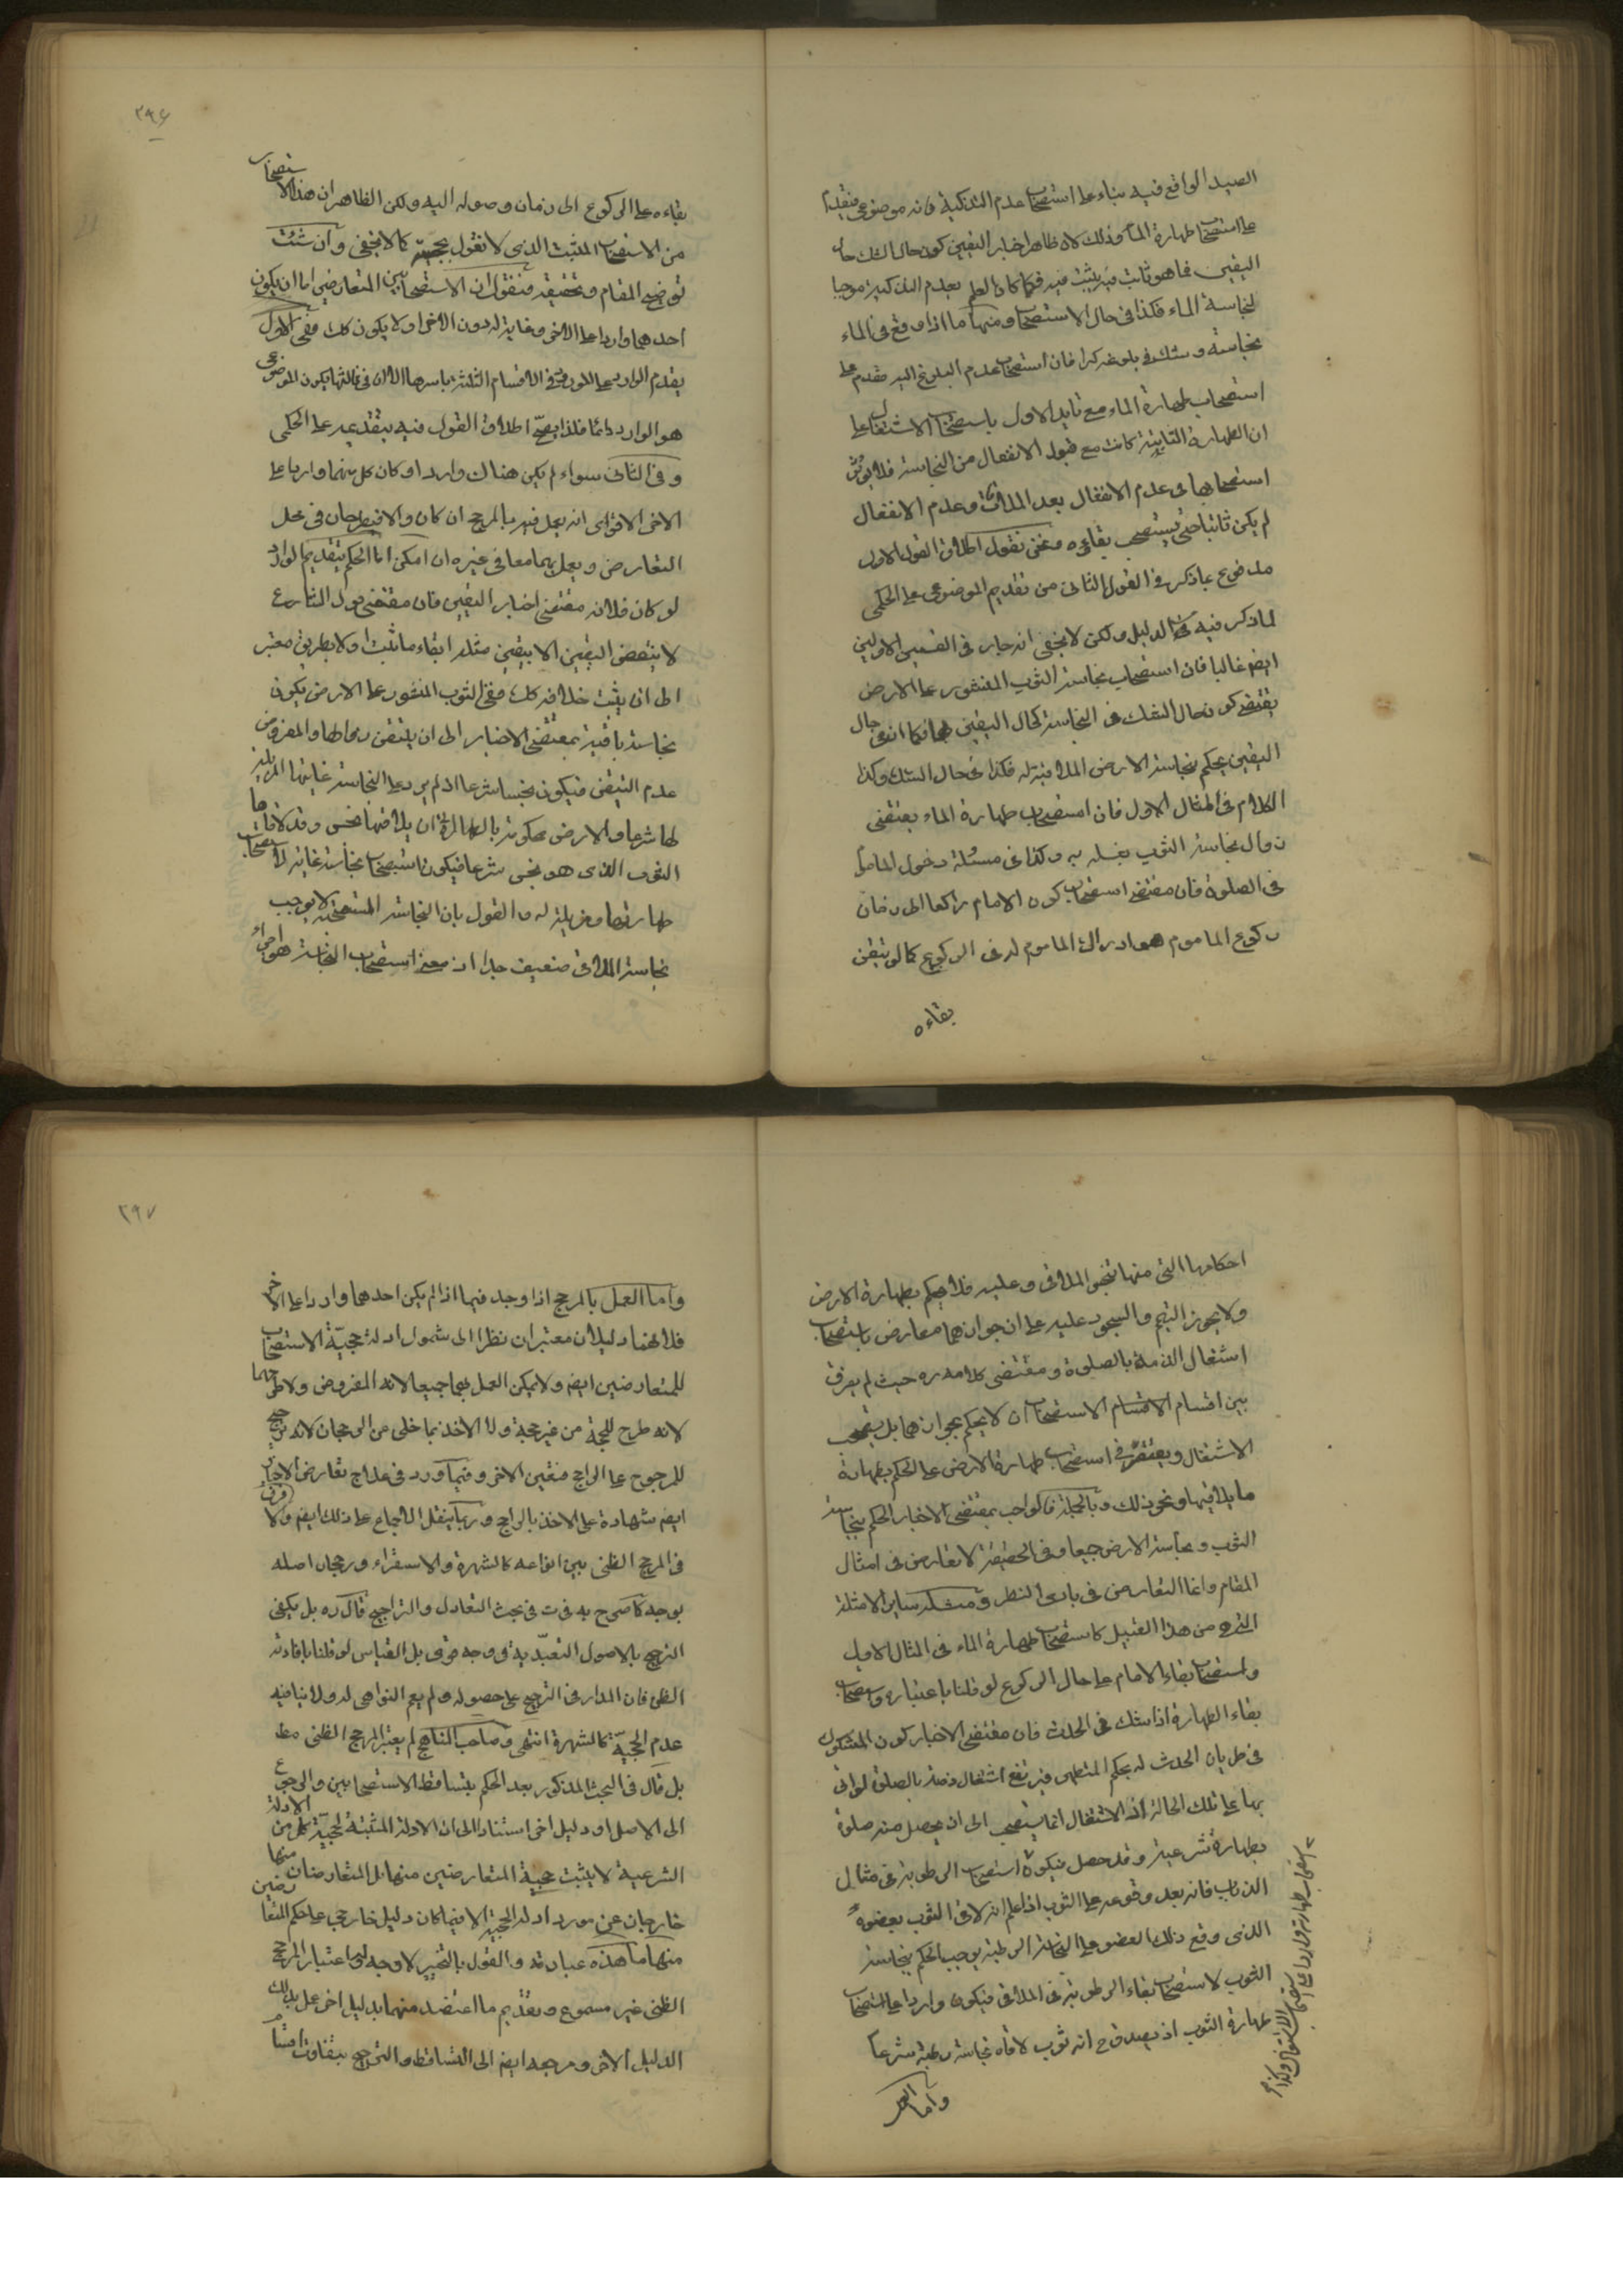 الصيد الواقع فيه بناء على استصحاب عدم التذكية فانه موضوعى مقدم
على استصحاب طهارة الماء وذلك لان ظاهر اخبار اليقين كون حال الشك حال
اليقين فما هو ثابت فيه يثبت فيه فكما كان العلم بعدم التذكية موجبا
لنجاسة الماء فكذا فى حال الاستصحاب ومنها ما اذا وقع فى الماء
نجاسة وشك فى بلوغه كرا فان استصحاب عدم البلوغ اليه مقدم على
استصحاب طهارة الماء مع تايد الاول باستصحاب الاشتغال على
ان الطهارة الثابتة كانت مع قبول الانفعال من النجاسة فلا يؤثر
استصحابها فى عدم الانفعال بعد الملاقاة وعدم الانفعال
لم يكن ثابتا حتى يستصحب بقاءه فنحن نقول اطلاق القول الاول
مدفوع بما ذكر فى القول الثانى من تقديم الموضوعى على الحكمى
لما ذكر فيه من الدليل ولكن لا يخفى انه جار فى القسمين الاولين
ايضا غالبا فان استصحاب نجاسة الثوب المنشور على الارض
يقتضى كون حال الشك فى النجاسة كحال اليقين بها فكما ان فى حال
اليقين يحكم بنجاسة الارض الملاقية له فكذا فى حال الشك وكذا
الكلام فى المثال الاول فان استصحاب طهارة الماء يقتضى
زوال نجاسة الثوب بغسله به وكذا فى مسئلة دخول الماموم
فى الصلوة فان مقتضى استصحاب كون الامام راكعا الى زمان
ركوع الماموم هو ادراك الماموم له فى الركوع كما لو تيقن
بقاءه
٢٩٦
بقاءه على الركوع الى زمان وصوله اليه ولكن الظاهر ان هذا الاستصحاب
من الاستصحاب المثبت الذى لا نقول بحجيته كما لا يخفى وان شئت
توضيح المقام وتحقيقه فنقول ان الاستصحابين المتعارضين اما ان يكون
احدهما واردا على الاخر وغاية له دون الاخر او لا يكون كك ففى الاول
يقدم الوارد على المورود فى الاقسام الثلثة باسرها الا ان فى ثالثها يكون الموضوعى
هو الوارد دائما فلذا يصح اطلاق القول فيه بتقديمه على الحكمى
وفى الثانى سواء لم يكن هناك وارد او كان كل منهما واردا على
الاخر الاقوى انه يعمل فيه بالمرجح ان كان والا فيطرحان فى محل
التعارض ويعمل بهما معا فى غيره ان امكن اما الحكم بتقديم الوارد
لو كان فلانه مقتضى اخبار اليقين فان مقتضى قول الشارع
لا ينقض اليقين الا بيقين مثله ابقاء ما ثبت اولا بطريق معتبر
الى ان يثبت خلافه كك ففى الثوب المنشور على الارض يكون
نجاسة باقية بمقتضى الاخبار الى ان يتيقن رفعها والمفروض
عدم التيقن فيكون نجسا شرعا اذ لم يرد على النجاسة غايتها المزيلة
لها شرعا والارض محكومة بالطهارة الى ان يلاقيها نجس وقد لاقاها
الثوب الذى هو نجس شرعا فيكون استصحاب نجاسته غاية لاستصحاب
طهارتها ومزيلة له والقول بان النجاسة المستصحبة لا يوجب
نجاسة الملاقى ضعيف جدا اذ معنى استصحاب النجاسة هو اجراء
احكامها التى منها تنجس الملاقى وعليه فلا يحكم بطهارة الارض
ولا يجوز التيمم والسجود عليه على ان جوازهما معارض باستصحاب
اشتغال الذمة بالصلوة ومقتضى كلامه ره حيث لم يفرق
بين اقسام الاستصحاب ان لا يحكم بجوازهما بل يستصحب
الاشتغال ويقتصر فى استصحاب طهارة الارض على الحكم بطهارة
ما يلاقيها ونحو ذلك وبالجملة فالواجب بمقتضى الاخبار الحكم بنجاسة
الثوب ونجاسة الارض جميعا وفى الحقيقة لا تعارض فى امثال
المقام وانما التعارض فى بادى النظر ومثله ساير الامثلة
التى من هذا القبيل كاستصحاب طهارة الماء فى المثال الاول
واستصحاب بقاء الامام على حال الركوع لو قلنا باعتباره واستصحاب
بقاء الطهارة اذا شك فى الحدث فان مقتضى الاخبار كون المشكوك
فى طريان الحدث له بحكم المتطهر فيرتفع اشتغال ذمته بالصلوة لو اتى
بها على تلك الحالة اذ الاشتغال انما يستصحب الى ان يحصل منه صلوة
بطهارة شرعية وقد حصل فيكون استصحاب الرطوبة فى مثال
الذباب فانه بعد وقوعه على الثوب اذا علم انه لاقى الثوب بعضوه
الذى وقع ذلك العضو على النجاسة الرطبة يوجب الحكم بنجاسة
الثوب لاستصحاب بقاء الرطوبة فى الملاقى فيكون واردا على استصحاب
طهارة الثوب اذ يصدق ح انه ثوب لاقاه نجاسة رطبة شرعا
استصحاب طهارته واردا على استصحاب الاشتغال وكذا
واما العمل
٢٩٧
واما العمل بالمرجح اذا وجد فيما اذا لم يكن احدهما واردا على الاخر
فلانهما دليلان معتبران نظرا الى شمول ادلة حجية الاستصحاب
للمتعارضين ايضا ولا يمكن العمل بهما جميعا لانه المفروض ولا طرحهما
لانه طرح للحجة من غير حجة ولا الاخذ بما خلى من الرجحان لانه ترجيح
للمرجوح على الراجح فتعين الاخر وفيما ورد فى علاج تعارض الاخبار
ايضا شهادة على الاخذ بالراجح وربما ينقل الاجماع على ذلك ايضا ولا فرق
فى المرجح الظنى بين انواعه كالشهرة والاستقراء ورجحان اصله
بوجه كما صرح به فى ت فى بحث التعادل والتراجيح قال ره بل يكفى
الترجيح بالاصول التعبدية فى وجه قوى بل القياس لو قلنا بافادته
الظن فان المدار فى الترجيح على حصوله ولم يعم النواهى له ولا ينافيه
عدم الحجية كالشهرة انتهى وصاحب المناهج لم يعتبر المرجح الظنى مط
بل قال فى البحث المذكور بعد الحكم بتساقط الاستصحابين والرجوع
الى الاصل او دليل اخر استنادا الى ان الادلة المثبتة لحجية كل من الادلة
الشرعية لا يثبت حجية المتعارضين منها بل المتعارضان منها
خارجان عن مورد ادلة الحجية الا فيما كان دليل خارجى على حكم المتعارضين
منهما ما هذه عبارته والقول بالتخيير لا وجه له واعتبار المرجح
الظنى غير مسموع وتقديم ما اعتضد منهما بدليل اخر عمل بذلك
الدليل الاخر ومرجعه ايضا الى التساقط والترجيح بتفاوت اقسام